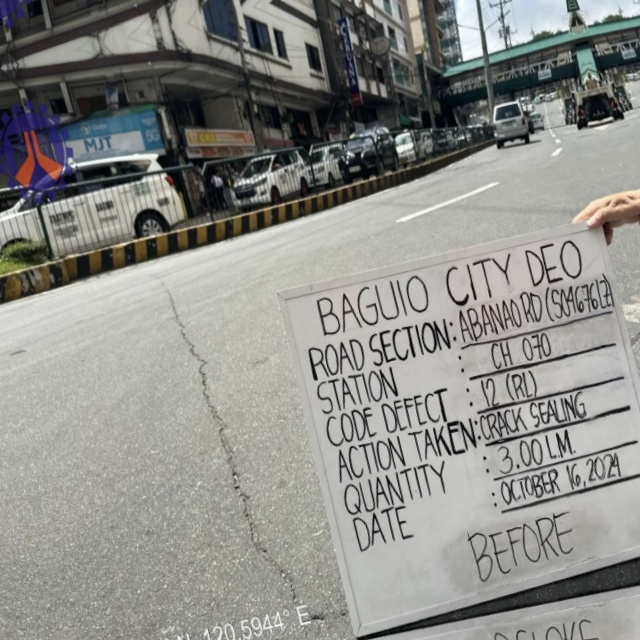 MJT
BAGUIO CITY DEO
ROAD SECTION: ABANAO RD (S04676LZ)
STATION : CH 070
CODE DEFECT : 12 (P1)
ACTION TAKEN: CRACK SEALING
QUANTITY : 3.00 L.M.
DATE : OCTOBER 16, 2024
BEFORE
120.5944° E